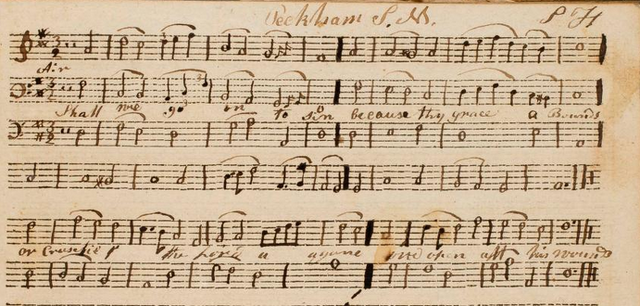 Peckham S. M.
Air
Shall we go on to sin because thy grace a Bounds
or Crusifie the Lord a again and open all his wounds